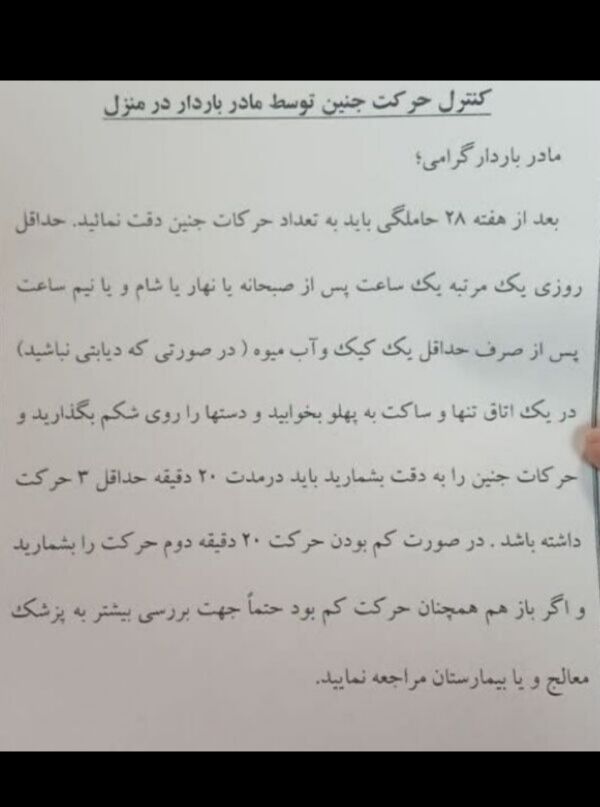 کنترل حرکت جنین توسط مادر باردار در منزل
مادر باردار گرامی؛
بعد از هفته ۲۸ حاملگی باید به تعداد حرکات جنین دقت نمائید. حداقل
روزی یک مرتبه یک ساعت پس از صبحانه یا نهار یا شام و یا نیم ساعت
پس از صرف حداقل یک کیک و آب میوه ( در صورتی که دیابتی نباشید)
در یک اتاق تنها و ساکت به پهلو بخوابید و دستها را روی شکم بگذارید و
حرکات جنین را به دقت بشمارید باید درمدت ۲۰ دقیقه حداقل ۳ حرکت
داشته باشد . در صورت کم بودن حرکت ۲۰ دقیقه دوم حرکت را بشمارید
و اگر باز هم همچنان حرکت کم بود حتماً جهت بررسی بیشتر به پزشک
معالج و یا بیمارستان مراجعه نمایید.